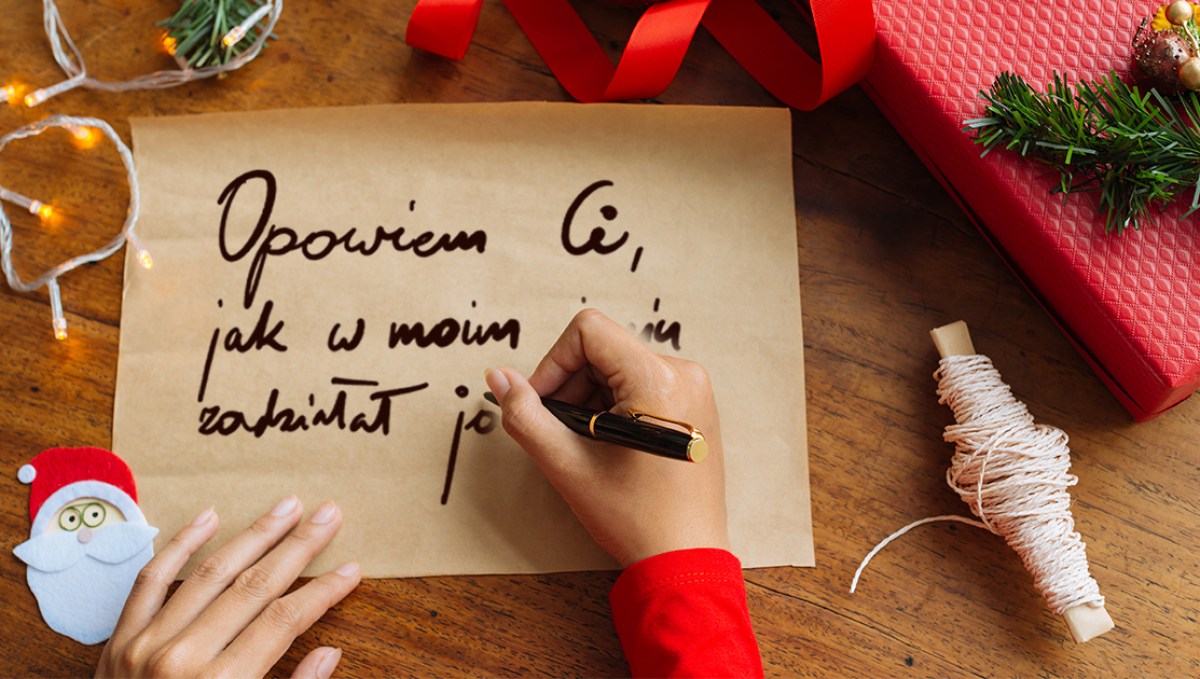 Opowiem Ci,
jak w moim
zadziałał